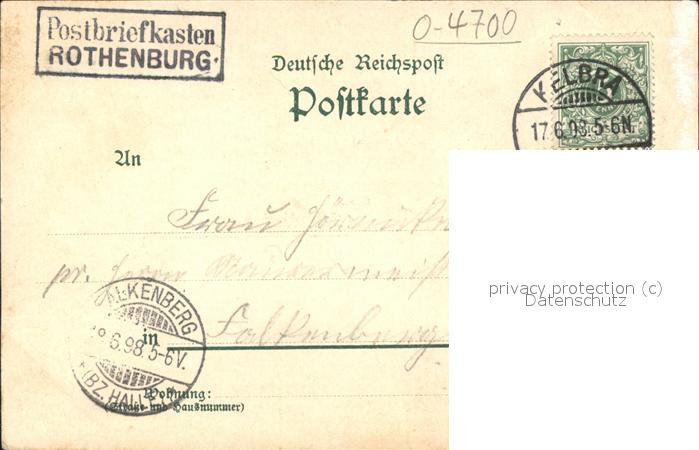 Postbriefkasten
ROTHENBURG.
0-4700
Deutsche Reichspost
Postkarte
KELBRA
17.6.98.5-6N.
An
Frau
pr. Herrn Maurermeist
Falkenberg
in
ALKENBERG
8.6.98.5-6V.
(BZ. HALLE)
Wohnung:
(Straße und Hausnummer)
privacy protection (c)
Datenschutz